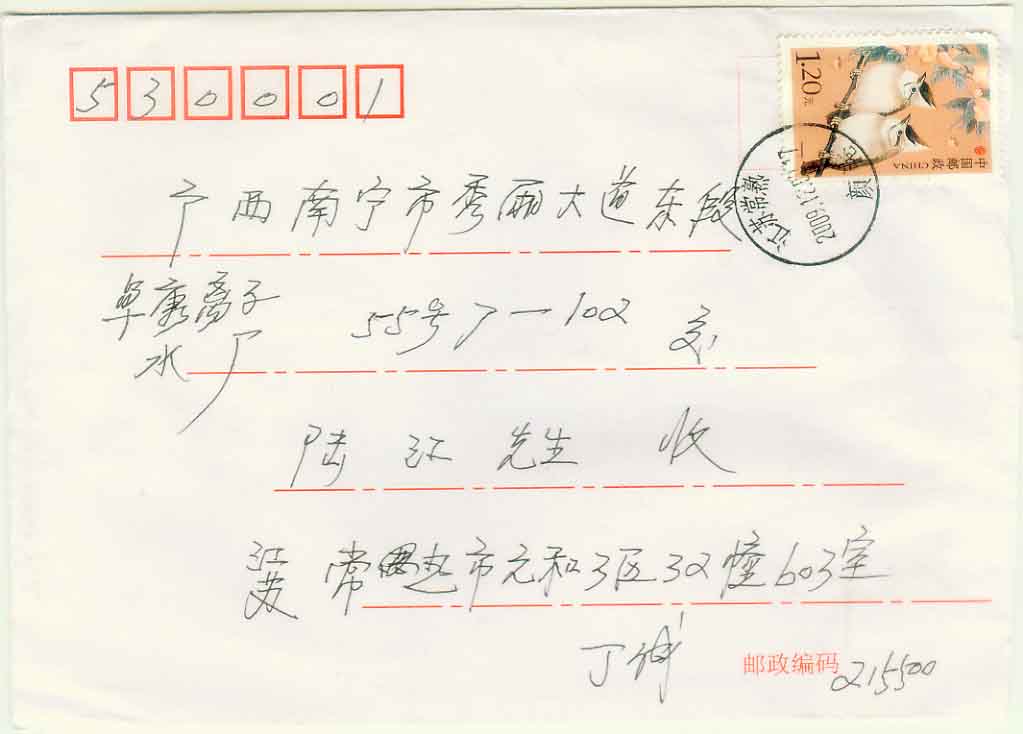 530001
1.20元
中国邮政 CHINA
江苏常熟
2009.12
广西南宁市秀丽大道东段
离子
水厂
55号7-102
陆 先生 收
江苏 常熟市元和3区32幢603室
丁
邮政编码 215500